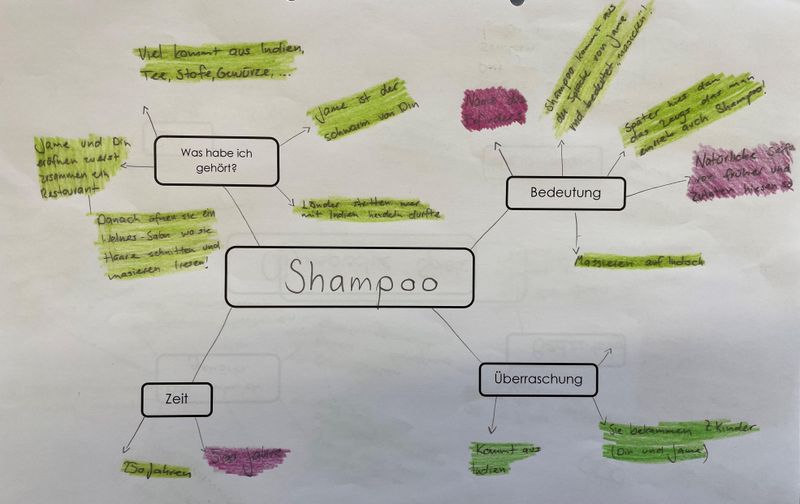 Viel kommt aus Indien,
Tee, Stofe, Gewürze, ...
Jame ist der
schwarm von Din
Was habe ich
gehört?
Jame und Din
eröfnen zuerst
zusammen ein
Restaurant
Danach öfnen sie ein
Welnes-Salon wo sie
Haare schnitten und
masieren liesen!
Länder stritten wer
mit Indien handeln durfte
Name des
Shampoo kommt aus
der Sprache von Jame
und bedeutet "masieren"!
Später hies dan
das Zeugs das man
einrieb auch Shampoo!
Natürliche Seife
von früher und
zutaten hiesen so
Bedeutung
Massieren auf Indisch
Shampoo
Zeit
250 Jahren
Jahre
Überraschung
Kommt aus
Indien
Sie bekammen 2 Kinder
(Din und Jame)